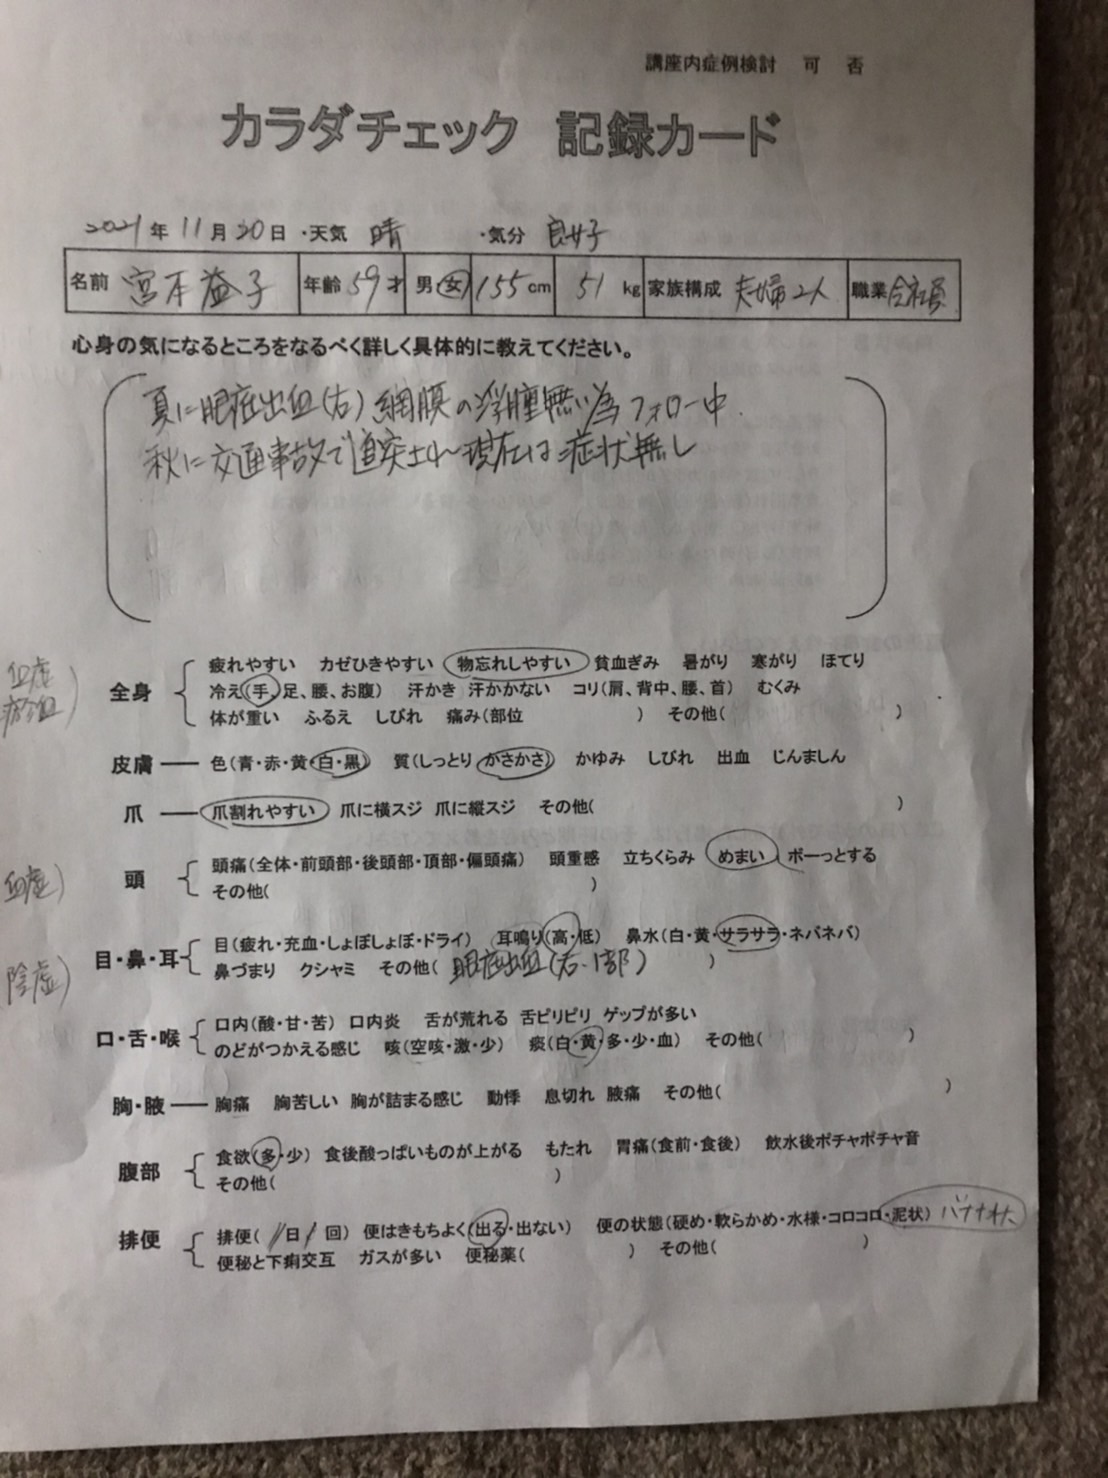 講座内症例検討 可 否
カラダチェック 記録カード
2021年 11月20日 ・天気 晴 ・気分 良好
名前 宮本益子 年齢 59才 男・女 155cm 51kg 家族構成 夫婦2人 職業 会社員
心身の気になるところをなるべく詳しく具体的に教えてください。
夏に眼底出血(右) 網膜の浮腫無い為フォロー中.
秋に交通事故で追突され 現在は症状無し
血虚
瘀血
全身
疲れやすい カゼひきやすい 物忘れしやすい 貧血ぎみ 暑がり 寒がり ほてり
冷え(手、足、腰、お腹) 汗かき 汗かかない コリ(肩、背中、腰、首) むくみ
体が重い ふるえ しびれ 痛み(部位 ) その他( )
皮膚 色(青・赤・黄・白・黒) 質(しっとり かさかさ) かゆみ しびれ 出血 じんましん
爪 爪割れやすい 爪に横スジ 爪に縦スジ その他( )
血虚)
頭
頭痛(全体・前頭部・後頭部・頂部・偏頭痛) 頭重感 立ちくらみ めまい ボーっとする
その他( )
陰虚)
目・鼻・耳
目(疲れ・充血・しょぼしょぼ・ドライ) 耳鳴り(高・低) 鼻水(白・黄・サラサラ・ネバネバ)
鼻づまり クシャミ その他( 眼底出血(右・1部) )
口・舌・喉
口内(酸・甘・苦) 口内炎 舌が荒れる 舌ピリピリ ゲップが多い
のどがつかえる感じ 咳(空咳・激・少) 痰(白・黄・多・少・血) その他( )
胸・腋 胸痛 胸苦しい 胸が詰まる感じ 動悸 息切れ 腋痛 その他( )
腹部
食欲(多・少) 食後酸っぱいものが上がる もたれ 胃痛(食前・食後) 飲水後ポチャポチャ音
その他( )
排便
排便( 1日1回) 便はきもちよく(出る・出ない) 便の状態(硬め・軟らかめ・水様・コロコロ・泥状) バナナ状
便秘と下痢交互 ガスが多い 便秘薬( ) その他( )